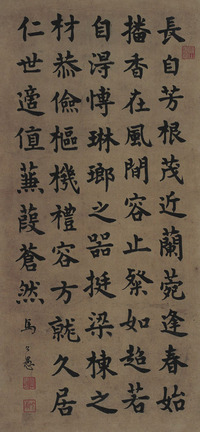 長自芳根茂近蘭菀逢春始
播香在風間容止粲如超若
自淂愽琳瑯之器挺梁棟之
材恭儉樞機禮容方就久居
仁世適值蒹葭蒼然
馬